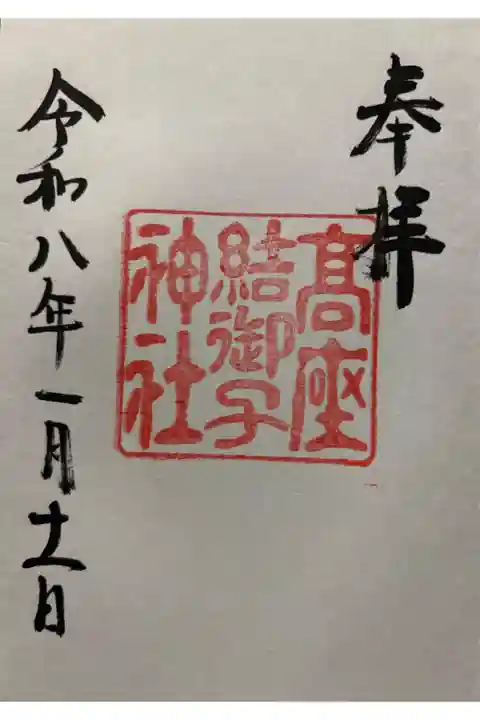 奉拝
髙座
結御子
神社
令和八年一月十一日